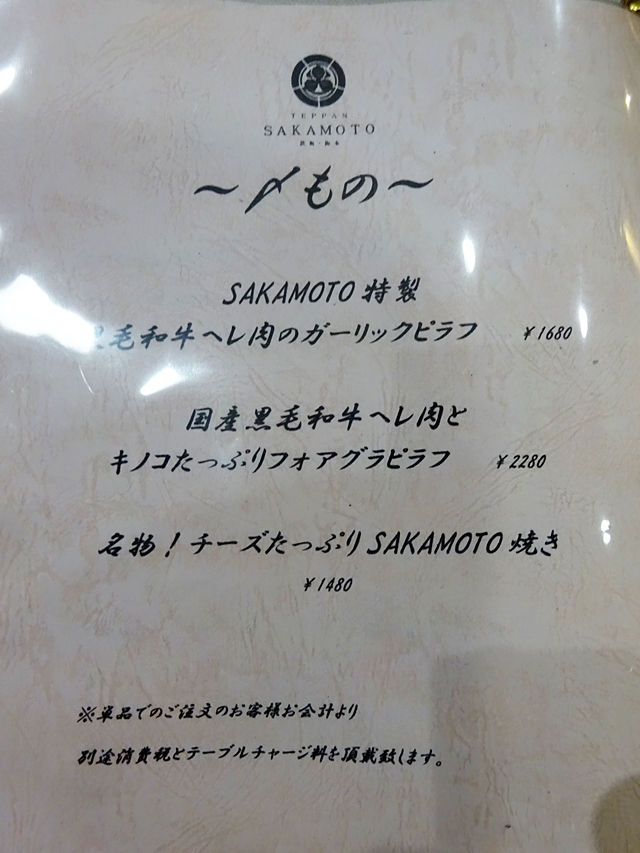 TEPPAN
SAKAMOTO
～〆もの～
SAKAMOTO 特製
毛和牛ヘレ肉のガーリックピラフ ¥1680
国産黒毛和牛ヘレ肉と
キノコたっぷりフォアグラピラフ ¥2280
名物！チーズたっぷりSAKAMOTO焼き
¥1480
※単品でのご注文のお客様お会計より
別途消費税とテーブルチャージ料を頂戴致します。